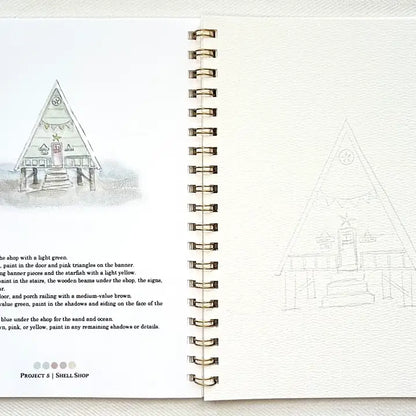 he shop with a light green.
, paint in the door and pink triangles on the banner.
ng banner pieces and the starfish with a light yellow.
paint in the stairs, the wooden beams under the shop, the signs,
or.
loor, and porch railing with a medium-value brown.
value green, paint in the shadows and siding on the face of the
blue under the shop for the sand and ocean.
wn, pink, or yellow, paint in any remaining shadows or details.
PROJECT 5 | SHELL SHOP